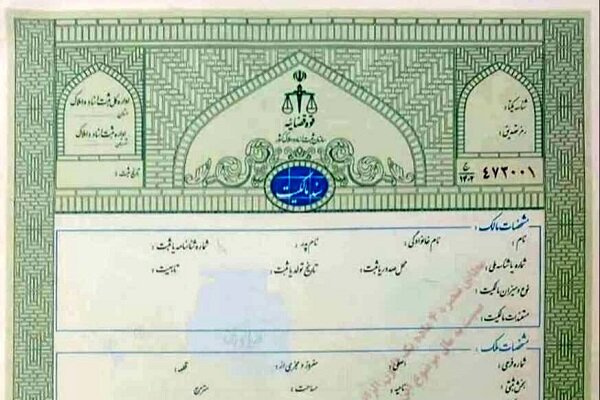 قوه قضاییه
سازمان ثبت اسناد و املاک کشور
سند مالکیت
اداره کل ثبت اسناد و املاک
استان:
اداره ثبت اسناد و املاک
شهرستان:
تاریخ ثبت:
شناسه یکتا:
رمز تصدیق:
۴۷۲۰۰۱
مشخصات مالک:
نام: نام خانوادگی: نام پدر: شماره شناسنامه یا ثبت:
شماره یا شناسه ملی: محل صدور یا ثبت: تاریخ تولد یا ثبت: تابعیت:
نوع و میزان مالکیت:
مستندات مالکیت:
مشخصات ملک:
شماره فرعی: اصلی: مفروز و مجزی از: قطعه:
بخش ثبتی: ناحیه: مساحت: مترمربع